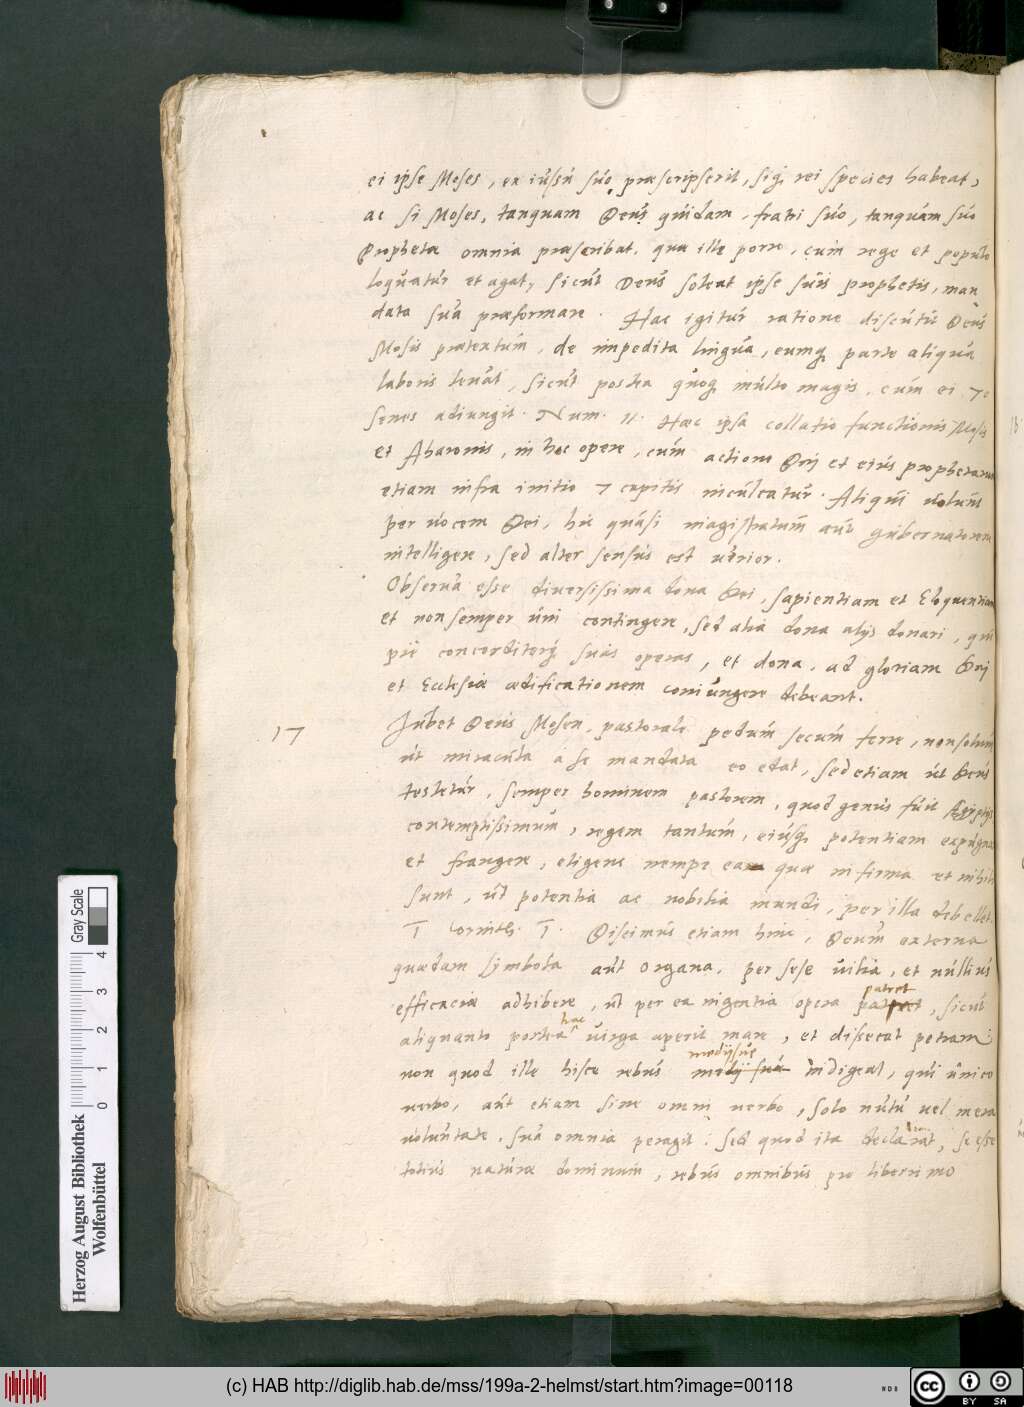 ei ipse Moses, ex iussu suo praescripserit, sig. rei species habeat,
ac si Moses, tanquam Deus quidam, fratri suo, tanquam suo
Prophetae omnia praescribat, quae ille porro, cum rege et populo
loquatur et agat, sicut Deus soleat ipse suis prophetis, man
data sua praeformare. Hac igitur ratione discutit Deus
Mosis praetextum, de impedita lingua, eumq parte aliqua
laboris levat, sicut postea quoq multo magis, cum ei 70
senes adiungit. Num. 11. Haec ipsa collatio functionis Mosis
et Aharonis, in hoc opere, cum actione Dei et eius prophetarum
etiam infra initio 7 capitis inculcatur. Aliqui volunt
per vocem Dei, hic quasi magistratum aut gubernatorem
intelligere, sed alter sensus est verior.
Observa esse diversissima dona Dei, sapientiam et Eloquentiam
et non semper uni contingere, sed alia dona alijs donari, qui
pie concorditerq suas operas, et dona, ad gloriam Dei
et Ecclesiae aedificationem coniungere debeant.
17 Iubet Deus Mosen, pastorale pedum secum ferre, non solum
ut miracula a se mandata eo edat, sed etiam ut Deus
testetur, semper hominem pastorem, quod genus fuit Aegyptijs
contemptissimum, regem tantum, eiusq potentiam expugna
et frangere, eligere nempe ea quae infirma et nihil
sunt, ut potentia ac nobilia mundi, per illa debellet.
I Corinth. I. Discimus etiam hinc, Deum externa
quaedam symbola aut organa, per sese vilia, et nullius
patret
efficaciae adhibere, ut per ea ingentia opera patret, sicut
hac
aliquanto postea virga aperit mare, et dissecat petram:
medijsue
non quod ille hisce rebus medijsua indigeat, qui unico
verbo, aut etiam sine omni verbo, solo nutu vel mera
voluntate, sua omnia peragit: sed quod ita declarat, se esse
totius naturae dominum, rebus omnibus pro liberrimo
Gray Scale
0 1 2 3 4
Herzog August Bibliothek
Wolfenbüttel
(c) HAB http://diglib.hab.de/mss/199a-2-helmst/start.htm?image=00118
cc BY SA